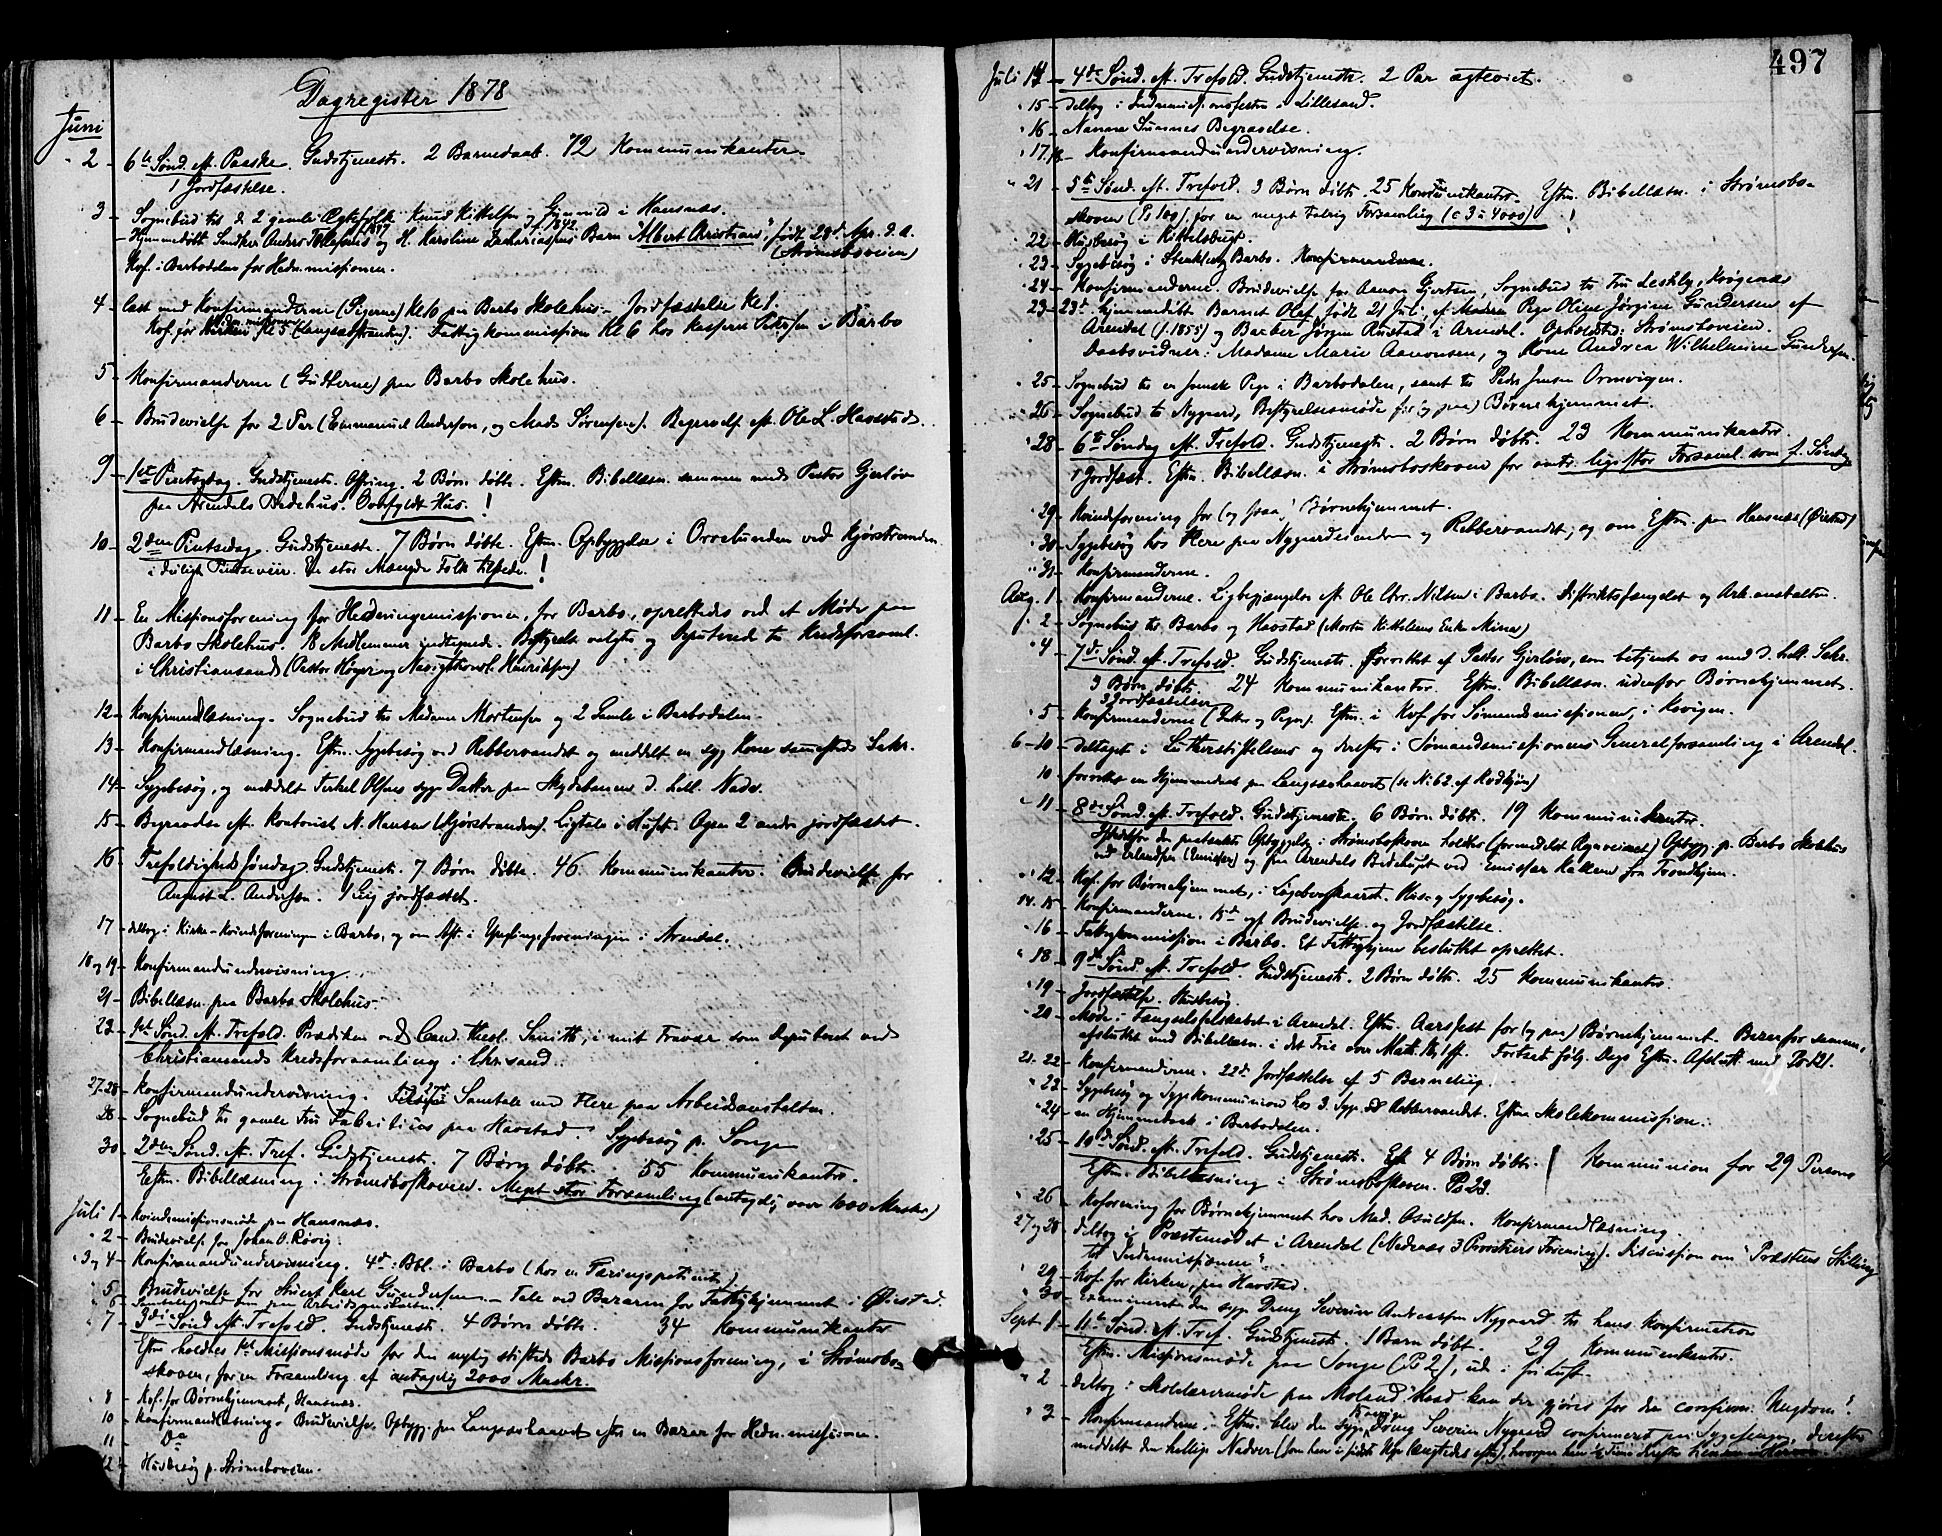 Dagregister 1878
Juni
2 - 6te Sønd. eft. Paaske. Gudstjeneste. 2 Barnedaab. 72 Kommunikanter.
1 Jordfæstelse.
3 - Sognebud til de 2 gamle Ægtefolk Knud Kittelsen og Gunvald i Hansnæs.
- Hjemmedøbt Andreas og H. Karoline Zachariassens Barn Albert Kristian, født 28de Apr. d. A.
(Strømsboveien)
Kof. i Barbodalen for Hedn.missionen.
4 - læst med Konfirmanderne (Pigerne) Kl 10 paa Barbo Skolehus. Jordfæstelse Kl 1.
Kof. for Kirken Kl 5 (Langsæstranden). Fattigkommission Kl 6 hos Kasper Petersen i Barbo
5 - Konfirmanderne (Gutterne) paa Barbo Skolehus.
6 - Brudevielse for 2 Par (Emmanuel Andersen, og Mads Sørensen). Begravelse eft. Ole L. Havstad.
9 - 1ste Pintsedag. Gudstjeneste. Offring. 2 Børn døbte. Eftm. Bibellæsn. sammen med Pastor Gjerløv
paa Arendals Bedehus. Overfyldt Hus. !
10 - 2den Pintsedag. Gudstjeneste. 7 Børn døbte. Eftm. Opbyggelse i Orrelunden ved Kjørstranden
i deiligt Pintseveir. En stor Mængde Folk tilstede. !
11 - En Missionsforening for Hedningemissionen, for Barbo, oprettedes ved et Møde paa
Barbo Skolehus. 18 Medlemmer indtegnede. Bestyrelse valgtes og Deputerede til Kredsforsaml.
i Christianssand (Pastor Høyer og Navigationsl. Henriksen)
12 - Konfirmandlæsning. Sognebud til Madame Mortensen og 2 Gamle i Barbodalen.
13 - Konfirmandlæsning. Eftm. Sygebesøg ved Rebbervandet og meddelt en syg Kone sammesteds Sakr.
14 - Sygebesøg, og meddelt Terkel Olsens syge Datter paa Skydebanen d. hell. Nadv.
15 - Begravelse eft. Kontorist N. Hansen (Kjørstranden). Ligtale i Huset. Ogsaa 2 andre jordfæstet.
16 - Trefoldigheds Søndag. Gudstjeneste. 7 Børn døbte. 46 Kommunikanter. Brudevielse for
August L. Andersen. 1 Lig jordfæstet.
17 - deltog i Kirke-Kvindeforeningen i Barbo, og om Aft. i Ynglingeforeningen i Arendal.
18 og 19 - Konfirmandundervisning.
21 - Bibellæsn. paa Barbo Skolehus.
23 - 1st Sønd. eft. Trefold. Prædiken ved Cand. theol. Smith, i mit Fravær som Deputeret ved
Christianssands Kredsforsamling i Chr.sand.
27.28 - Konfirmandundervisning. 27de Samtale med Flere paa Arbeidsanstalten.
28 - Sognebud til gamle Fru Fabritius paa Havstad. Sygebesøg p. Songe
30 - 2den Sønd. eft. Tref. Gudstjeneste. 7 Børn døbte. 55 Kommunikanter.
Eftm. Bibellæsning i Strømsboskoven. Meget stor Forsamling (antagel. over 1000 Msker)
Juli 1 - Kvindemissionsmøde paa Hansnæs.
2 - Brudevielse for Johan O. Røvig.
3 og 4 - Konfirmandundervisning. 4de: Bbl. i Barbo
5 - Brudevielse for Karl Gundersen. - Tale ved Bazaren for Fattighjemmet i Øiestad.
6 - Samtale paa Arbeidsanstalten.
7 - 3die Sønd. eft. Trefold. Gudstjeneste. 4 Børn døbte. 34 Kommunikanter
Eftm. holdtes 1st Missionsmøde for den nylig stiftede Barbo Missionsforening, i Strømsbo-
skoven, for en Forsamling af antagelig 2000 Msker.
8 - Kof. for Børnehjemmet, Hansnæs.
10 - Konfirmandlæsning. Brudevielse. Opbygg. paa Langsæhaavet efter en Bazar for Hedn.missionen.
11 - Do
12 - Husbesøg p. Strømsboveien.
497
Juli 14 - 4de Sønd. eft. Trefold. Gudstjeneste. 2 Par ægteviet.
15 - deltog i Indremissionsfesten i Lillesand.
16 - Nanna Sunnes Begravelse.
17.18 - Konfirmandundervisning.
21 - 5te Sønd. eft. Trefold. 3 Børn døbte. 25 Kommunikanter. Eftm. Bibellæsn. i Strømsbo-
skoven (Ps 100), for en meget talrig Forsamling (c 3 à 4000) !
22 - Husbesøg i Kittelsbugt.
23 - Sygebesøg i Barbo. Konfirmanderne.
24 - Konfirmanderne. Brudevielse for Aanon Gjertsen. Sognebud til Fru Krøgenæs
23 - 23de hjemmedøbt Barnet Olaf, født 21 Juli, af Moderen Pige Oline Jørgine Gundersen af
Arendal (f. 1855) og Barber Jørgen Austad i Arendal. Opholdsted: Strømsboveien.
Daabsvidner: Madame Marie Aanonsen, og Kone Andrea Wilhelmine Gundersen.
25 - Sognebud til en svensk Pige i Barbodalen, samt til Peder Jensen Ormvigen.
26 - Sognebud til Nygaard, Bestyrelsesmøde for (og paa) Børnehjemmet.
28 - 6te Søndag eft. Trefold. Gudstjeneste. 2 Børn døbte. 23 Kommunikanter.
1 Jordfæst. Eftm. Bibellæsn. i Strømsboskoven for omtr. lige stor Forsaml. som f. Søndag
29 - Kvindeforening for (og paa) Børnehjemmet.
30 - Sygebesøg hos Flere paa Nygaard og Rebbervandet, og om Eftm. paa Hansnæs (Øiestad)
31 - Konfirmanderne.
Aug. 1 - Konfirmanderne. Ligbegjængelse eft. Ole Chr. Nilsen i Barbo. Distriktsfængslet og Arb.anstalten.
2 - Sognebud til Barbo og Havstad (Morten Kittelsens Enke )
4 - 7de Sønd. eft. Trefold. Gudstjeneste forrettet af Pastor Gjerløv, som betjente os med d. hell. Sakr.
3 Børn døbte. 24 Kommunikanter. Eftm. Bibellæsn. udenfor Børnehjemmet.
3 Jordfæstelser
5 - Konfirmanderne (Gutter og Piger). Eftm. i Kof. for Sømandsmissionen, i Kovigen.
6-10 - deltaget i Lutherstiftelsens og derefter i Sømandsmissionens Generalforsamling i Arendal.
10 - forrettet en Hjemmedaab paa Langsæhaavet (se N. 62 af Kvdkjøn)
11 - 8de Sønd. eft. Trefold. Gudstjeneste. 6 Børn døbte. 19 Kommunikanter.
Istedetfor den paatænkte Opbyggelse i Strømsboskoven holdtes (formedelst Regnveiret) Opbygg. p. Barbo Skolehus
ved Erlandsen (Emissær) og paa Arendals Bedehus ved Emissær Kalkem fra Trondhjem.
12 - Kof. for Børnehjemmet, i Hus- og Sygebesøg.
14. 15 - Konfirmanderne. 15de ogs. Brudevielse og Jordfæstelse.
16 - Fattigkommission i Barbo. Et Fattighjem besluttet oprettet.
18 - 9de Sønd. eft. Trefold. Gudstjeneste. 2 Børn døbte. 25 Kommunikanter.
19 - Jordfæstelse. Husbesøg.
20 - Møde i Fængselsselskabet i Arendal. Eftm. Aarsfest for (og paa) Børnehjemmet. Bazar for samme,
afsluttet med Bibellæsn. i det Frie over Matth. 18, 1 ff. Fortsat følg. Dags Eftm. Afslutt. med Ps 121.
21. 22 - Konfirmanderne. 22de Jordfæstelse af 5 Barnelig.
23 - Sygebesøg og Sygekommunion hos 3 Syge ved Rebbervandet. Eftm. Skolekommission.
24 - en Hjemmedaab i Barbodalen.
25 - 10de Sønd. eft. Trefold. Gudstjeneste. 4 Børn døbte. Kommunion for 29 Personer
Eftm. Bibellæsning i Strømsboskoven. Ps 23.
26 - Koforening for Børnehjemmet hos Mad. Osuldsen. Konfirmandlæsning.
27 og 28 - deltog i Præstemødet i Arendal (Nedenæs 3 Provstiers Forening). Diskussion om "Præstens Stilling
til Indremissionen".
29 - Kof. for Kirken, paa Havstad.
30 - Examineret den syge Dreng Severin Andreassen Nygaard til hans Konfirmation
Sept 1 - 11te Sønd. eft. Tref. Gudstjeneste. 1 Barn døbt. 29 Kommunikanter.
Eftm. Missionsmøde paa Songe (Ps 2), ude i fri Luft.
2 - deltog i Skolelærermøde paa Moland "Hvad kan der gjøres for den confirm. Ungdom".
3 - Konfirmanderne. Eftm. blev den syge Dreng Severin Nygaard confirmeret paa Sygesengen, derefter
meddelt den hellige Nadver (som han i sidste Uge længtedes efter), hvorpaa han ½ Time derefter hensov i Herren.